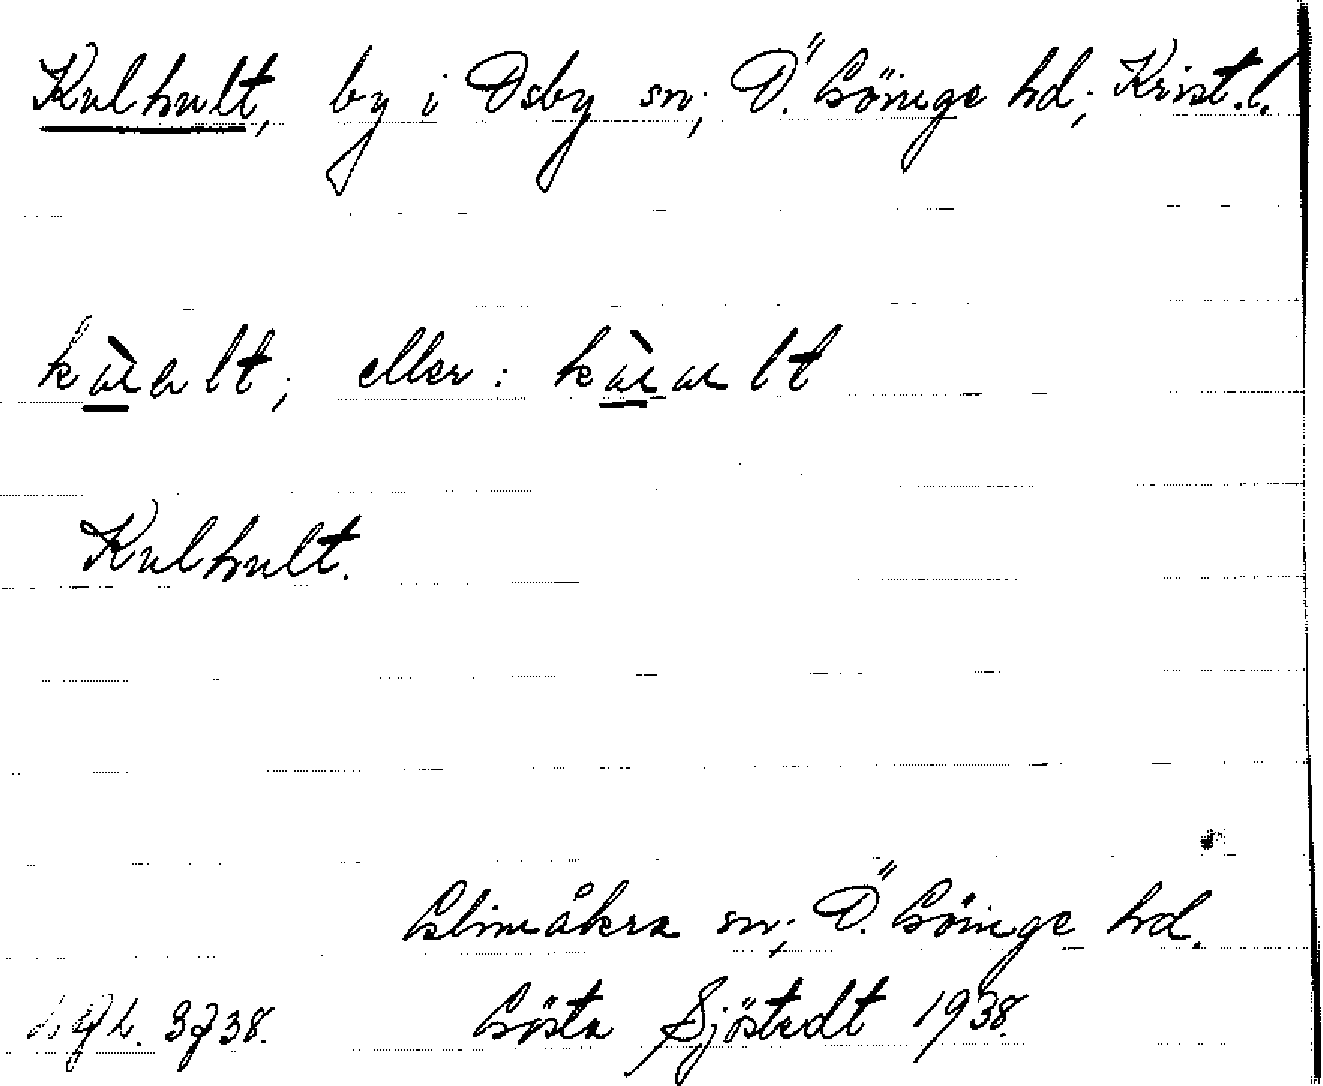 Kulhult, by i Osby sn; Ö. Göinge hd; Krist. l.
eller:
Kulhult.
Glimåkra sn; Ö. Göinge hd.
3738. Gösta Sjöstedt 1938.